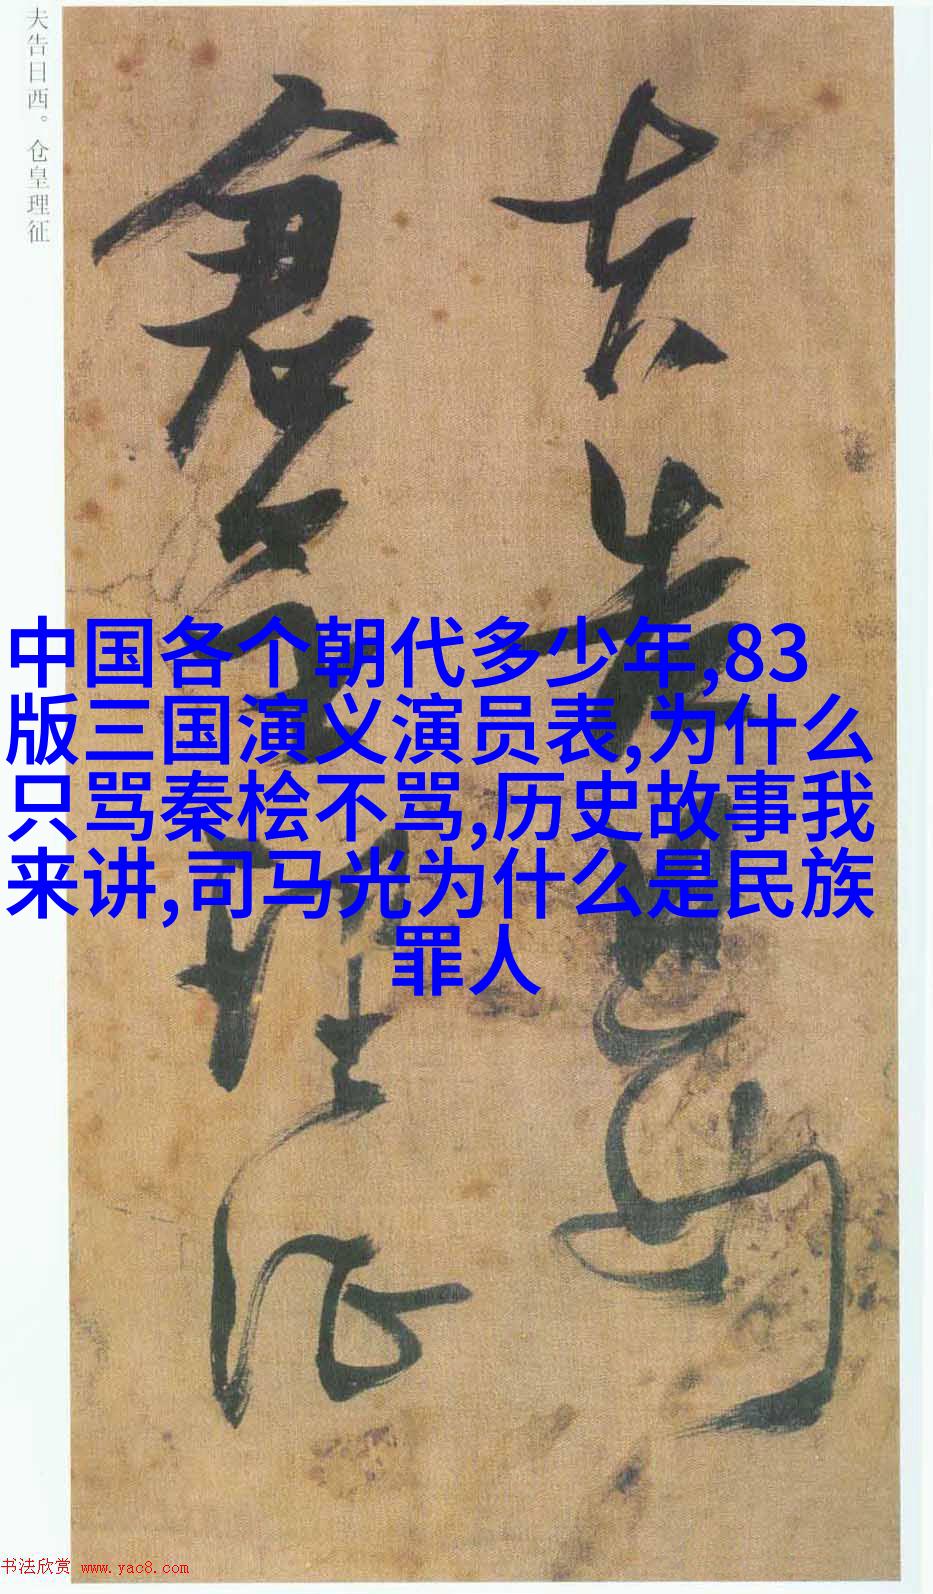 夫告日西。仓皇理征
夫告日西
仓皇理征
中国各个朝代多少年,83
版三国演义演员表,为什么
只骂秦桧不骂,历史故事我
来讲,司马光为什么是民族
罪人
书法欣赏 www.yac8.com